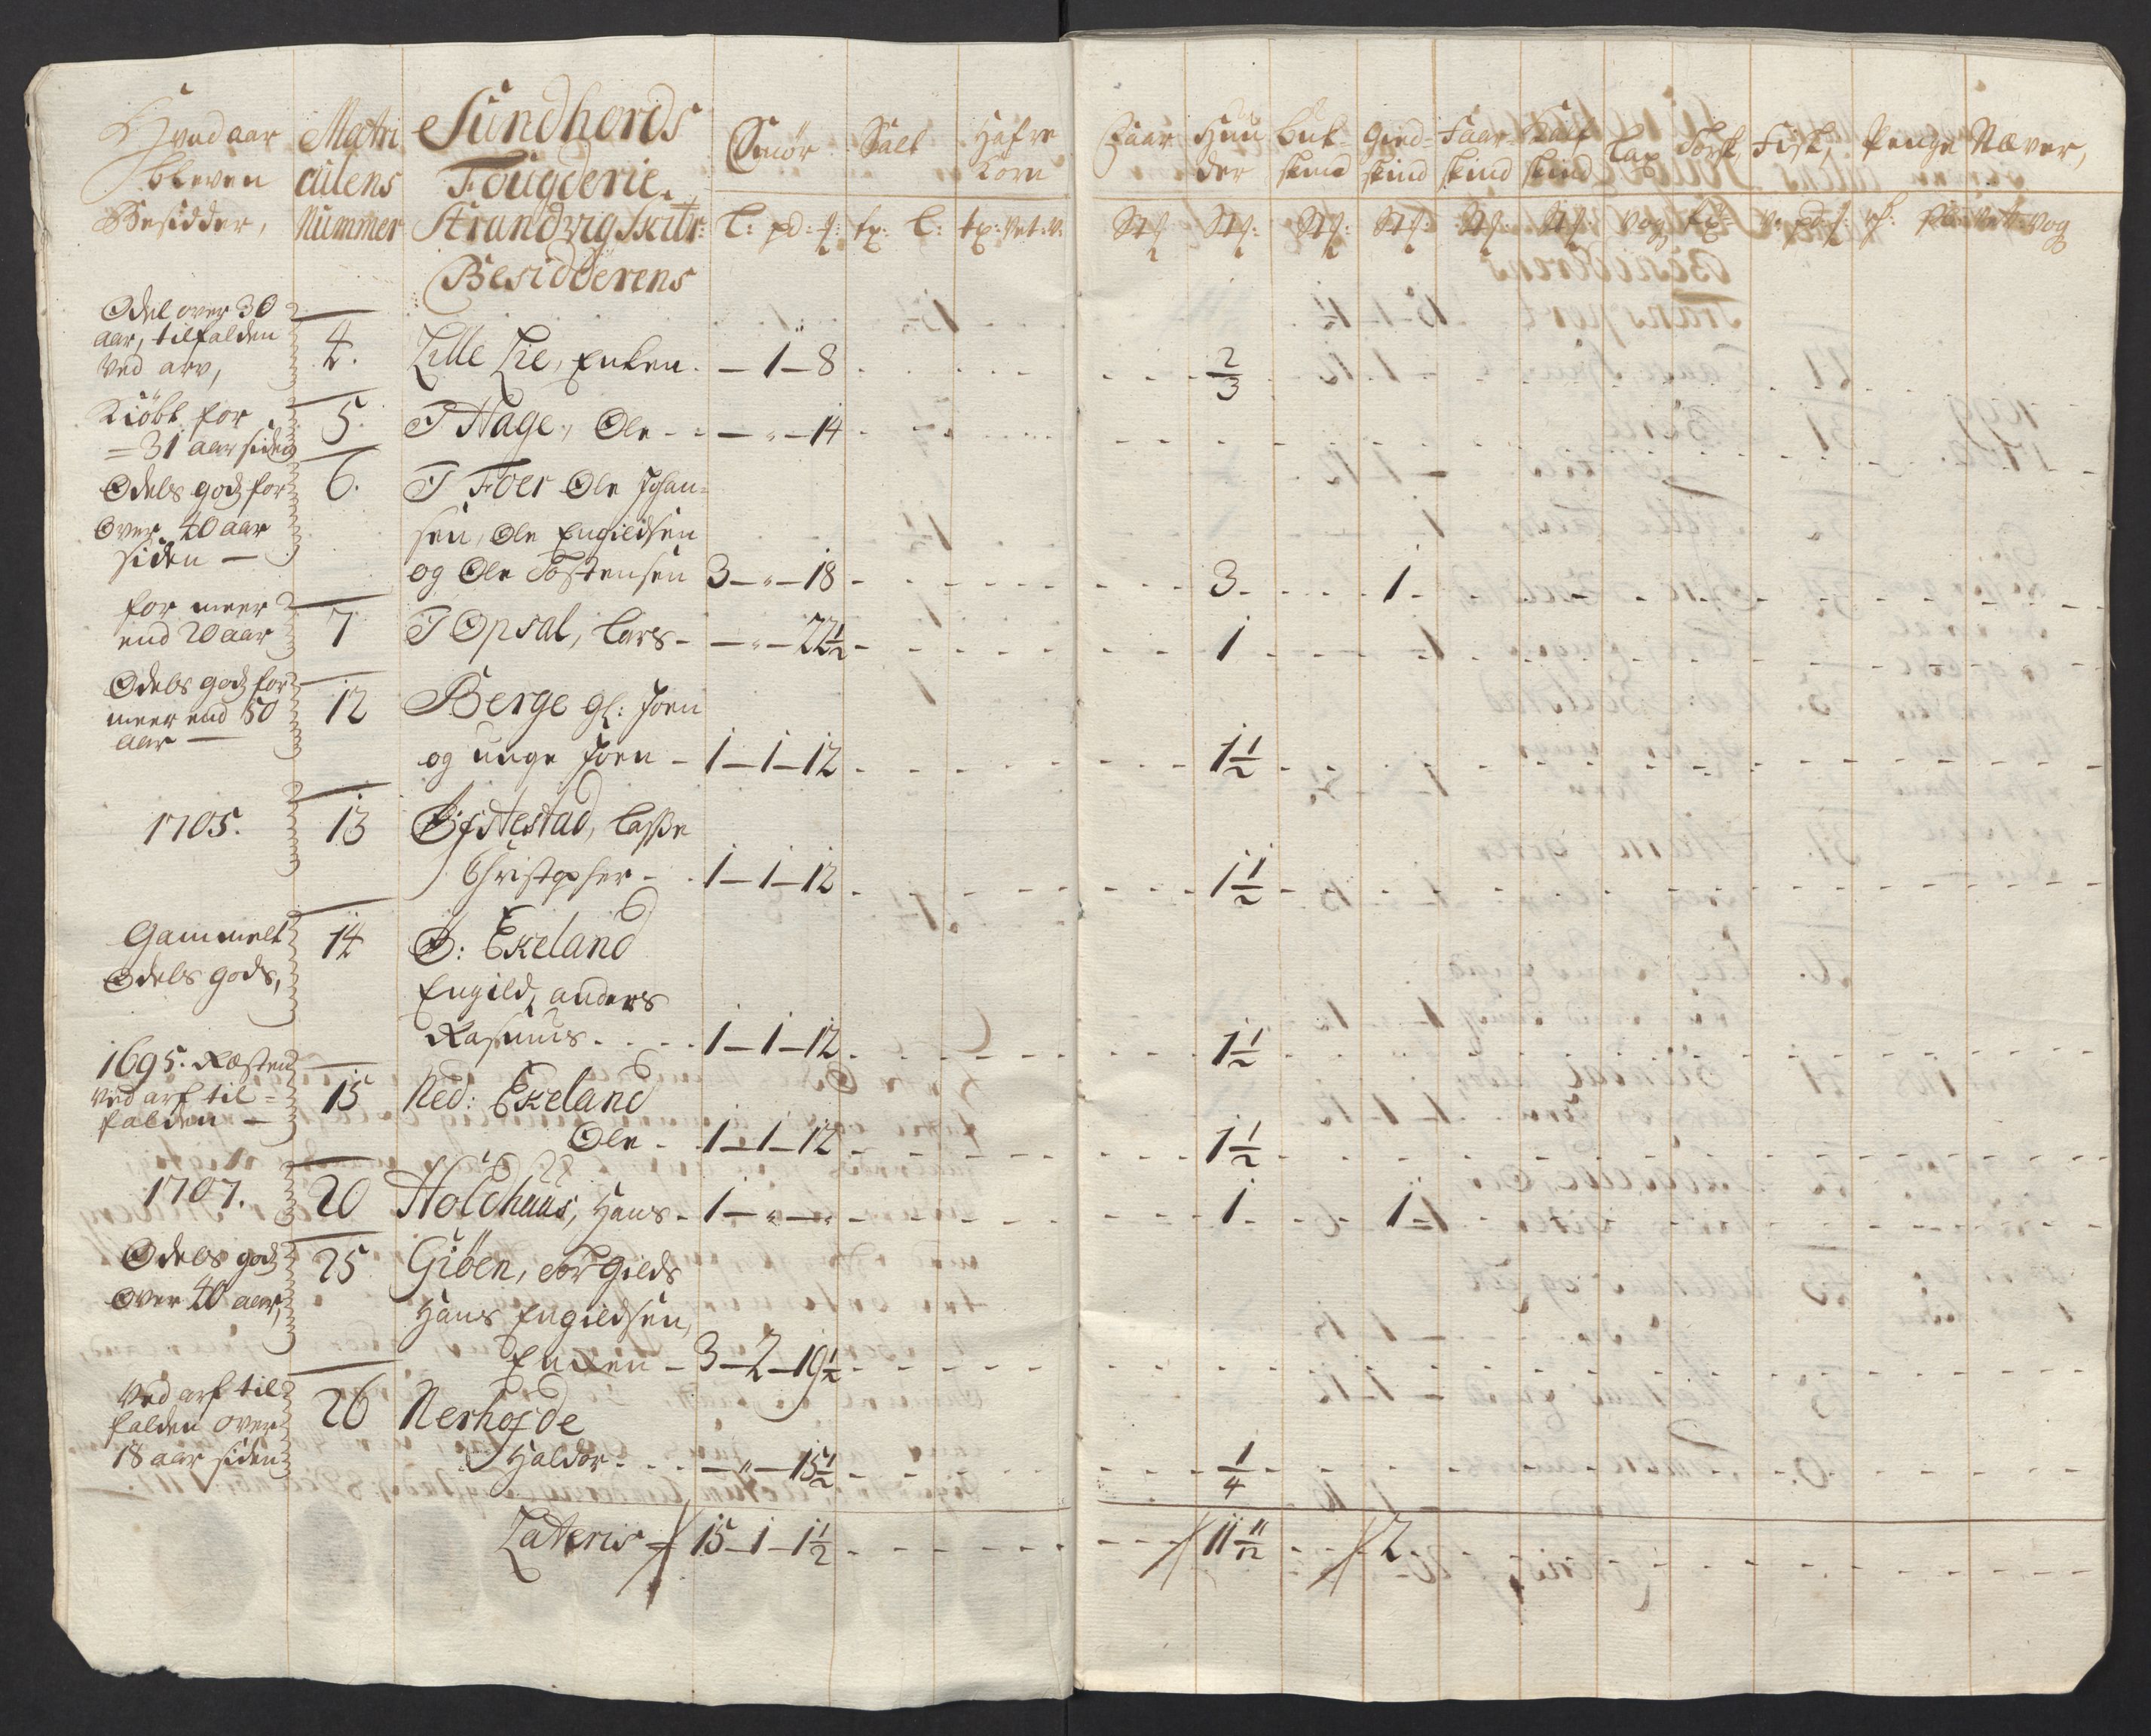 Hvad aar
bleven
Besidder,
Matri
culens
Nummer
Sundhords
Fougderie.
Strandvig Skibr:
Besidderens
Smör
Salt
Hafre
Korn
L: pd: tx: L: tx: Vet: V:
Faar
Huu
der
Buk
skind
Gied
skind
Faar
skind
Kalf
skind
Lax
Torsk
Fisk,
Penge
Næver,
Vog
Odel over 30
aar, tilfalden
Ved arv,
4. Lille Lie, Enken. — 1 — 8 2/3
Kiöbt for
= 31 aar siden
5. T Hage, Ole — „ — 14
Odels godz for
over 40 aar
siden —
6. T Foer Ole Johan=
sen, Ole Engildsen
og Ole Tostensen 3 — „ — 18 3 1
for meer
end 20 aar
7 T Opsal, Lars — — „ — 22 1/2 1
Odels godz for
meer end 50
aar —
12 Berge gl: Joen
og unge Joen — 1 — 1 — 12 1 1/2
1705.
13 Öfstestad, Lasse
Christopher — 1 — 1 — 12 1 1/2
Gammelt
Odels gods,
14 Ö: Ekeland
Engild, anders
Rasmus 1 — 1 — 12 1 1/2
1695. Resten
Ved arf til=
falden —
15 Ned: Ekeland
Ole — 1 — 1 — 12 1 1/2
1707.
20 Holdhuus, Hans — 1 — „ — „ 1 1
Odels godz
over 40 aar,
25 Giöen, Torgilds
Hans Engildsen,
Enken — 3 — 2 — 19 1/2
Ved arf til
falden over
18 aar siden
26 Nerhofde
Haldor — „ — 15 1/2 1/4
Lateris 15 — 1 — 1 1/2 11 11/12 2